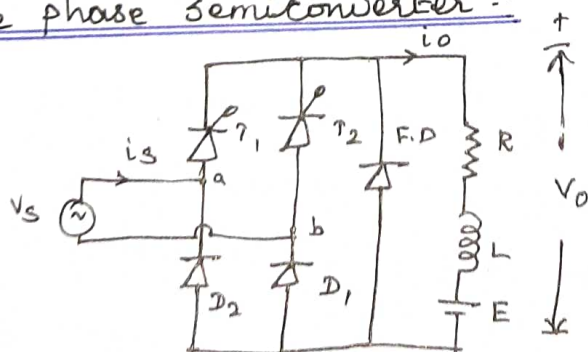 e phase semiconverter :-
io
+
T1
T2
F.D
R
is
a
Vs
Vo
b
L
D2
D1
E